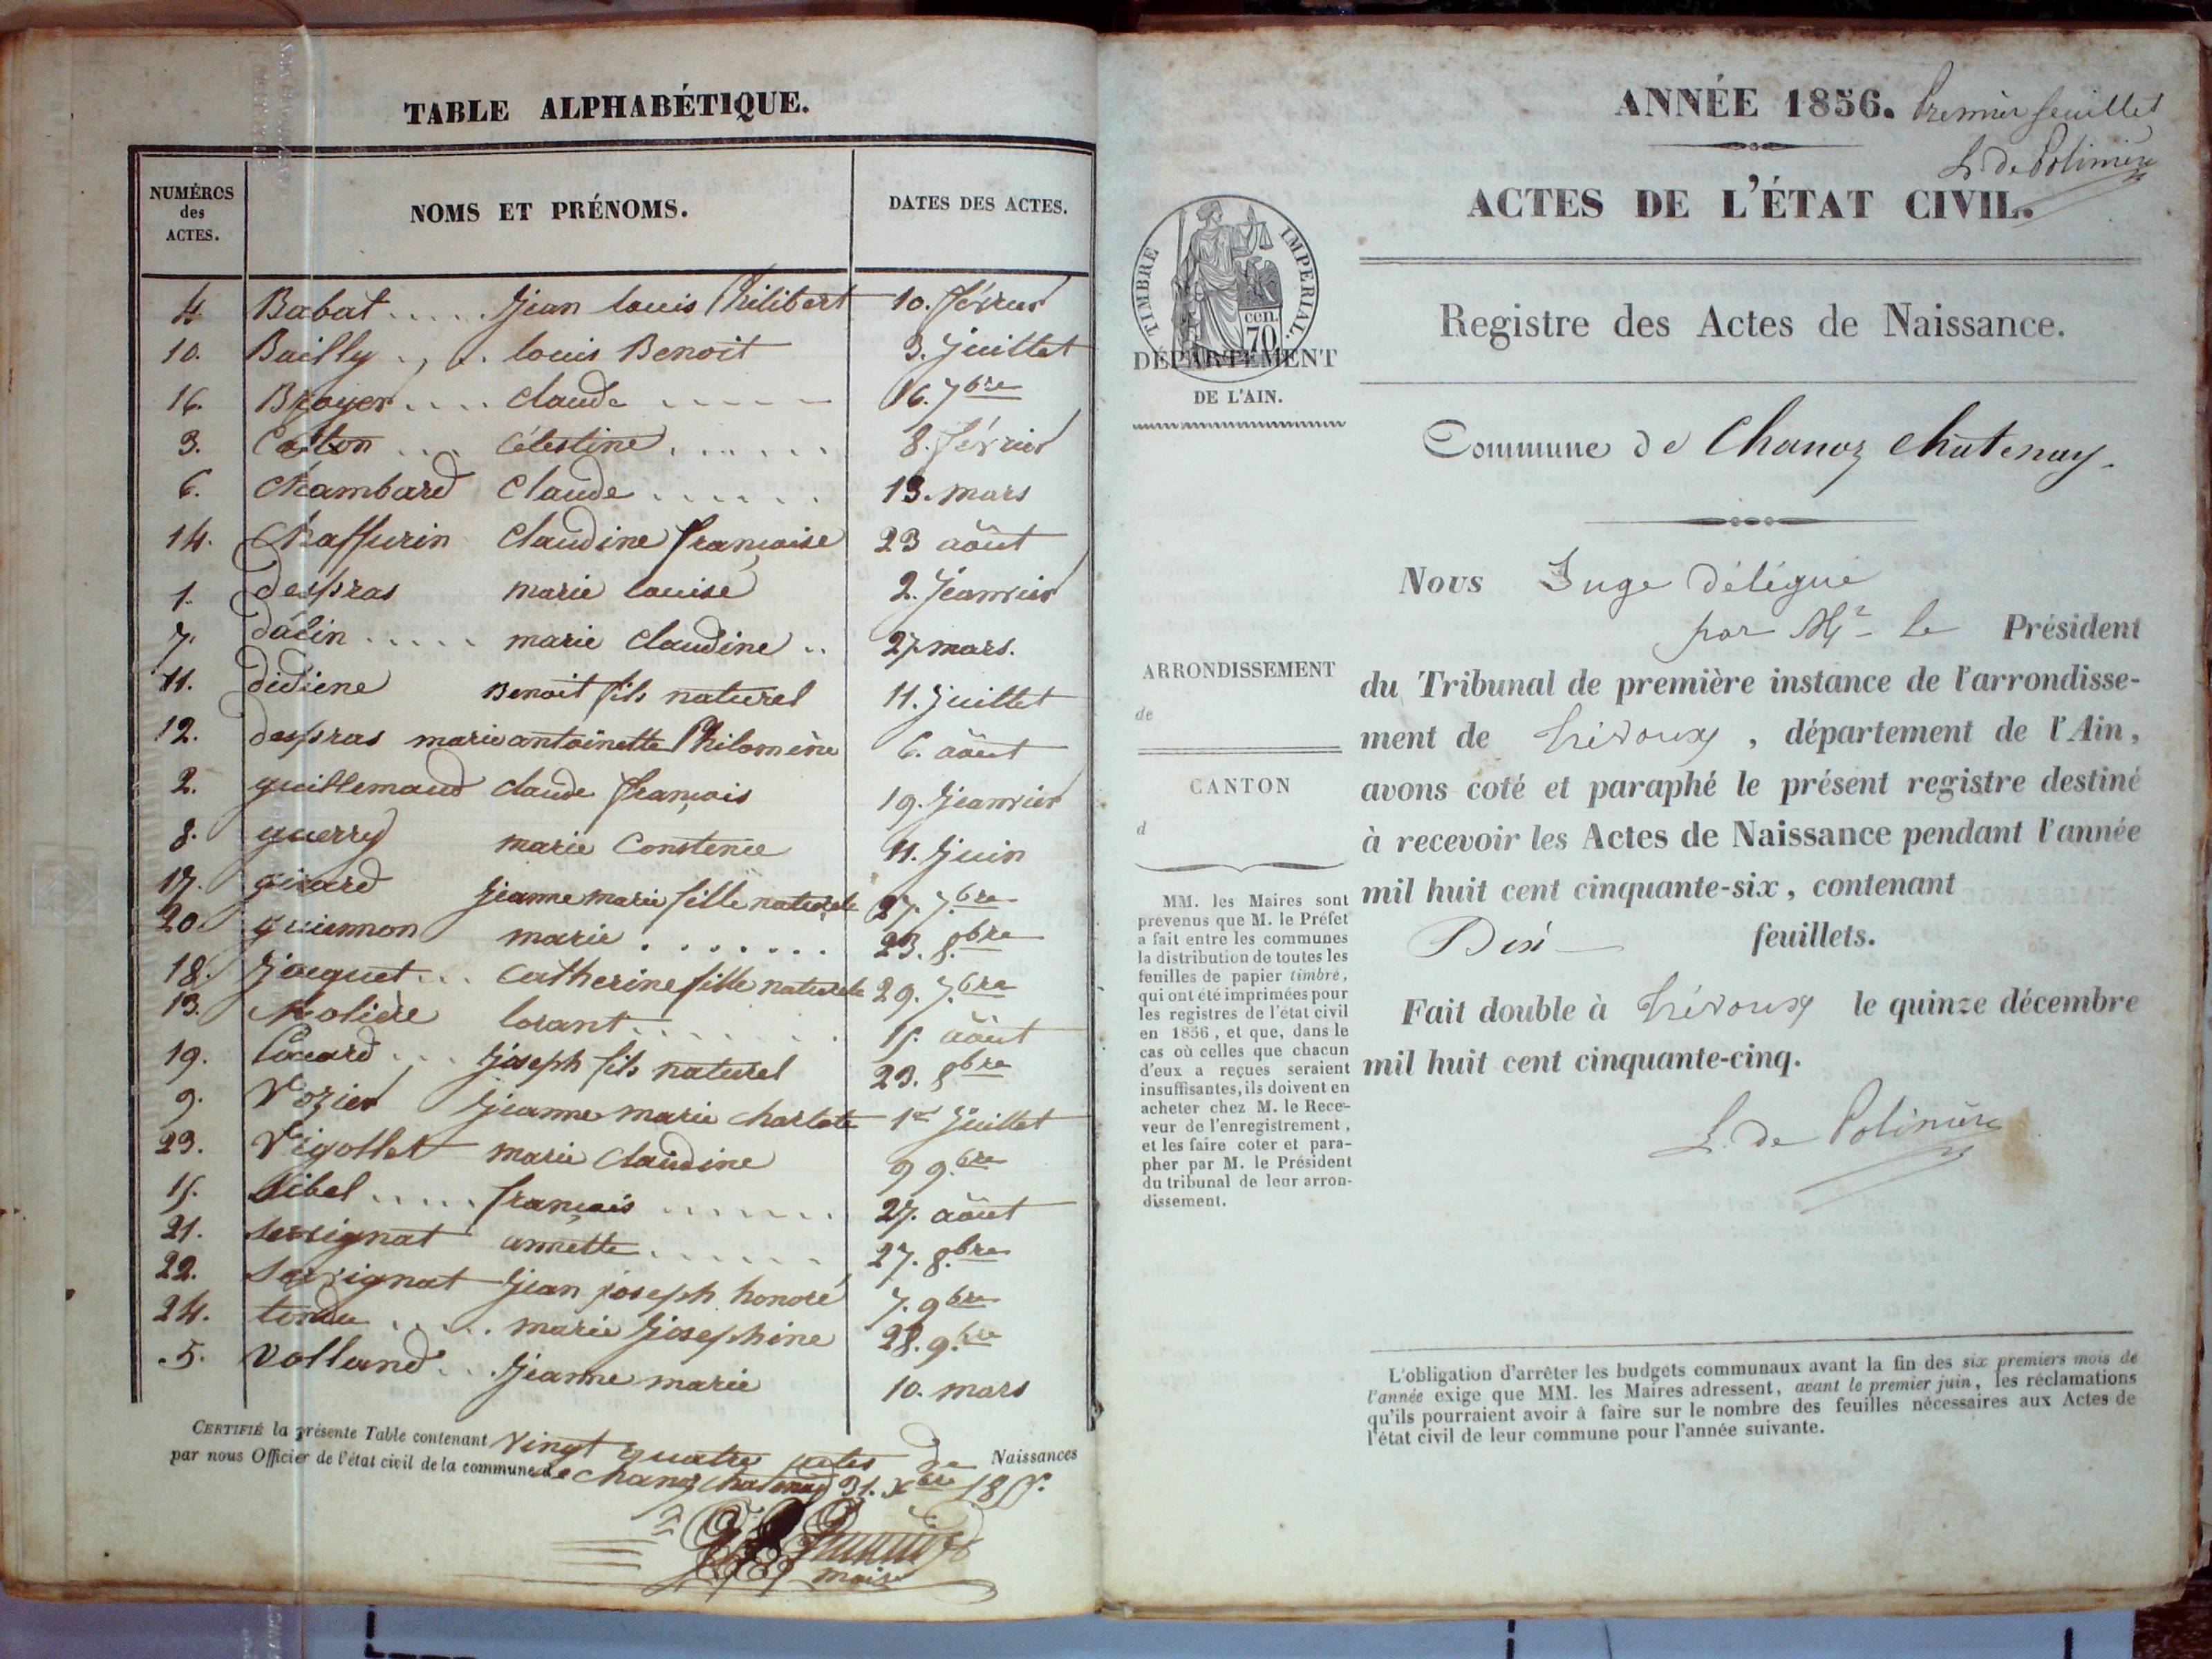 TABLE ALPHABÉTIQUE.
NUMÉROS des ACTES.
NOMS ET PRÉNOMS.
DATES DES ACTES.
4. Babat ..... Jean louis Philibert 10. février
10. Bailly ... louis Benoit 3. Juillet
16. Broyer .... Claude ..... 16. 7bre
3. Caston ... Célestine ...... 8. février
6. Chambard Claude ...... 13. mars
14. Chaffurin Claudine françoise 23 aôut
1. despras marie louise 2. Jeanvier
7. dalin ..... marie Claudine .. 27. mars.
11. didiene Benoit fils naturel 11. Juillet
12. despras marie antoinette Philomène 6. aôut
2. guillemaud claude françois 19. Jeanvier
8. guerry marie Constence 11. Juin
17. girard Jeanne marie fille naturele 27. 7.bre
20. guimmon marie ....... 23. 8.bre
18. Jacquet ... Catherine fille naturele 29. 7.bre
13. Moliere lorant ..... 15. aôut
19. Joseph fils naturel 23. 8bre
9. Vozier Jeanne marie Charlote 1er Juillet
23. Vigollet marie Claudine 9 9.bre
15. Sibel ..... françois ...... 27. aôut
21. Servignat annette ...... 27. 8.bre
22. Servignat Jean joseph honoré 7. 9bre
24. tendu ..... marie Josephine 28. 9.bre
5. Volland ... Jeanne marie 10. mars
CERTIFIÉ la présente Table contenant Vingt quatre actes de Naissances
par nous Officier de l'état civil de la commune de Chanoz Chatenay 31. Xbre
maire
ANNÉE 1856. Premier feuillet
L. de Polinière
ACTES DE L'ÉTAT CIVIL.
TIMBRE IMPERIAL.
cen.
70
DÉPARTEMENT
DE L'AIN.
Registre des Actes de Naissance.
Commune de Chanoz Chatenay.
ARRONDISSEMENT
de
CANTON
d
MM. les Maires sont
prévenus que M. le Préfet
a fait entre les communes
la distribution de toutes les
feuilles de papier timbré,
qui ont été imprimées pour
les registres de l'état civil
en 1856, et que, dans le
cas où celles que chacun
d'eux a reçues seraient
insuffisantes, ils doivent en
acheter chez M. le Rece-
veur de l'enregistrement,
et les faire coter et para-
pher par M. le Président
du tribunal de leur arron-
dissement.
Nous Juge Délégué
par Mr le Président
du Tribunal de première instance de l'arrondisse-
ment de Trévoux, département de l'Ain,
avons coté et paraphé le présent registre destiné
à recevoir les Actes de Naissance pendant l'année
mil huit cent cinquante-six, contenant
Dix feuillets.
Fait double à Trévoux le quinze décembre
mil huit cent cinquante-cinq.
L. de Polinière
L'obligation d'arrêter les budgets communaux avant la fin des six premiers mois de
l'année exige que MM. les Maires adressent, avant le premier juin, les réclamations
qu'ils pourraient avoir à faire sur le nombre des feuilles nécessaires aux Actes de
l'état civil de leur commune pour l'année suivante.